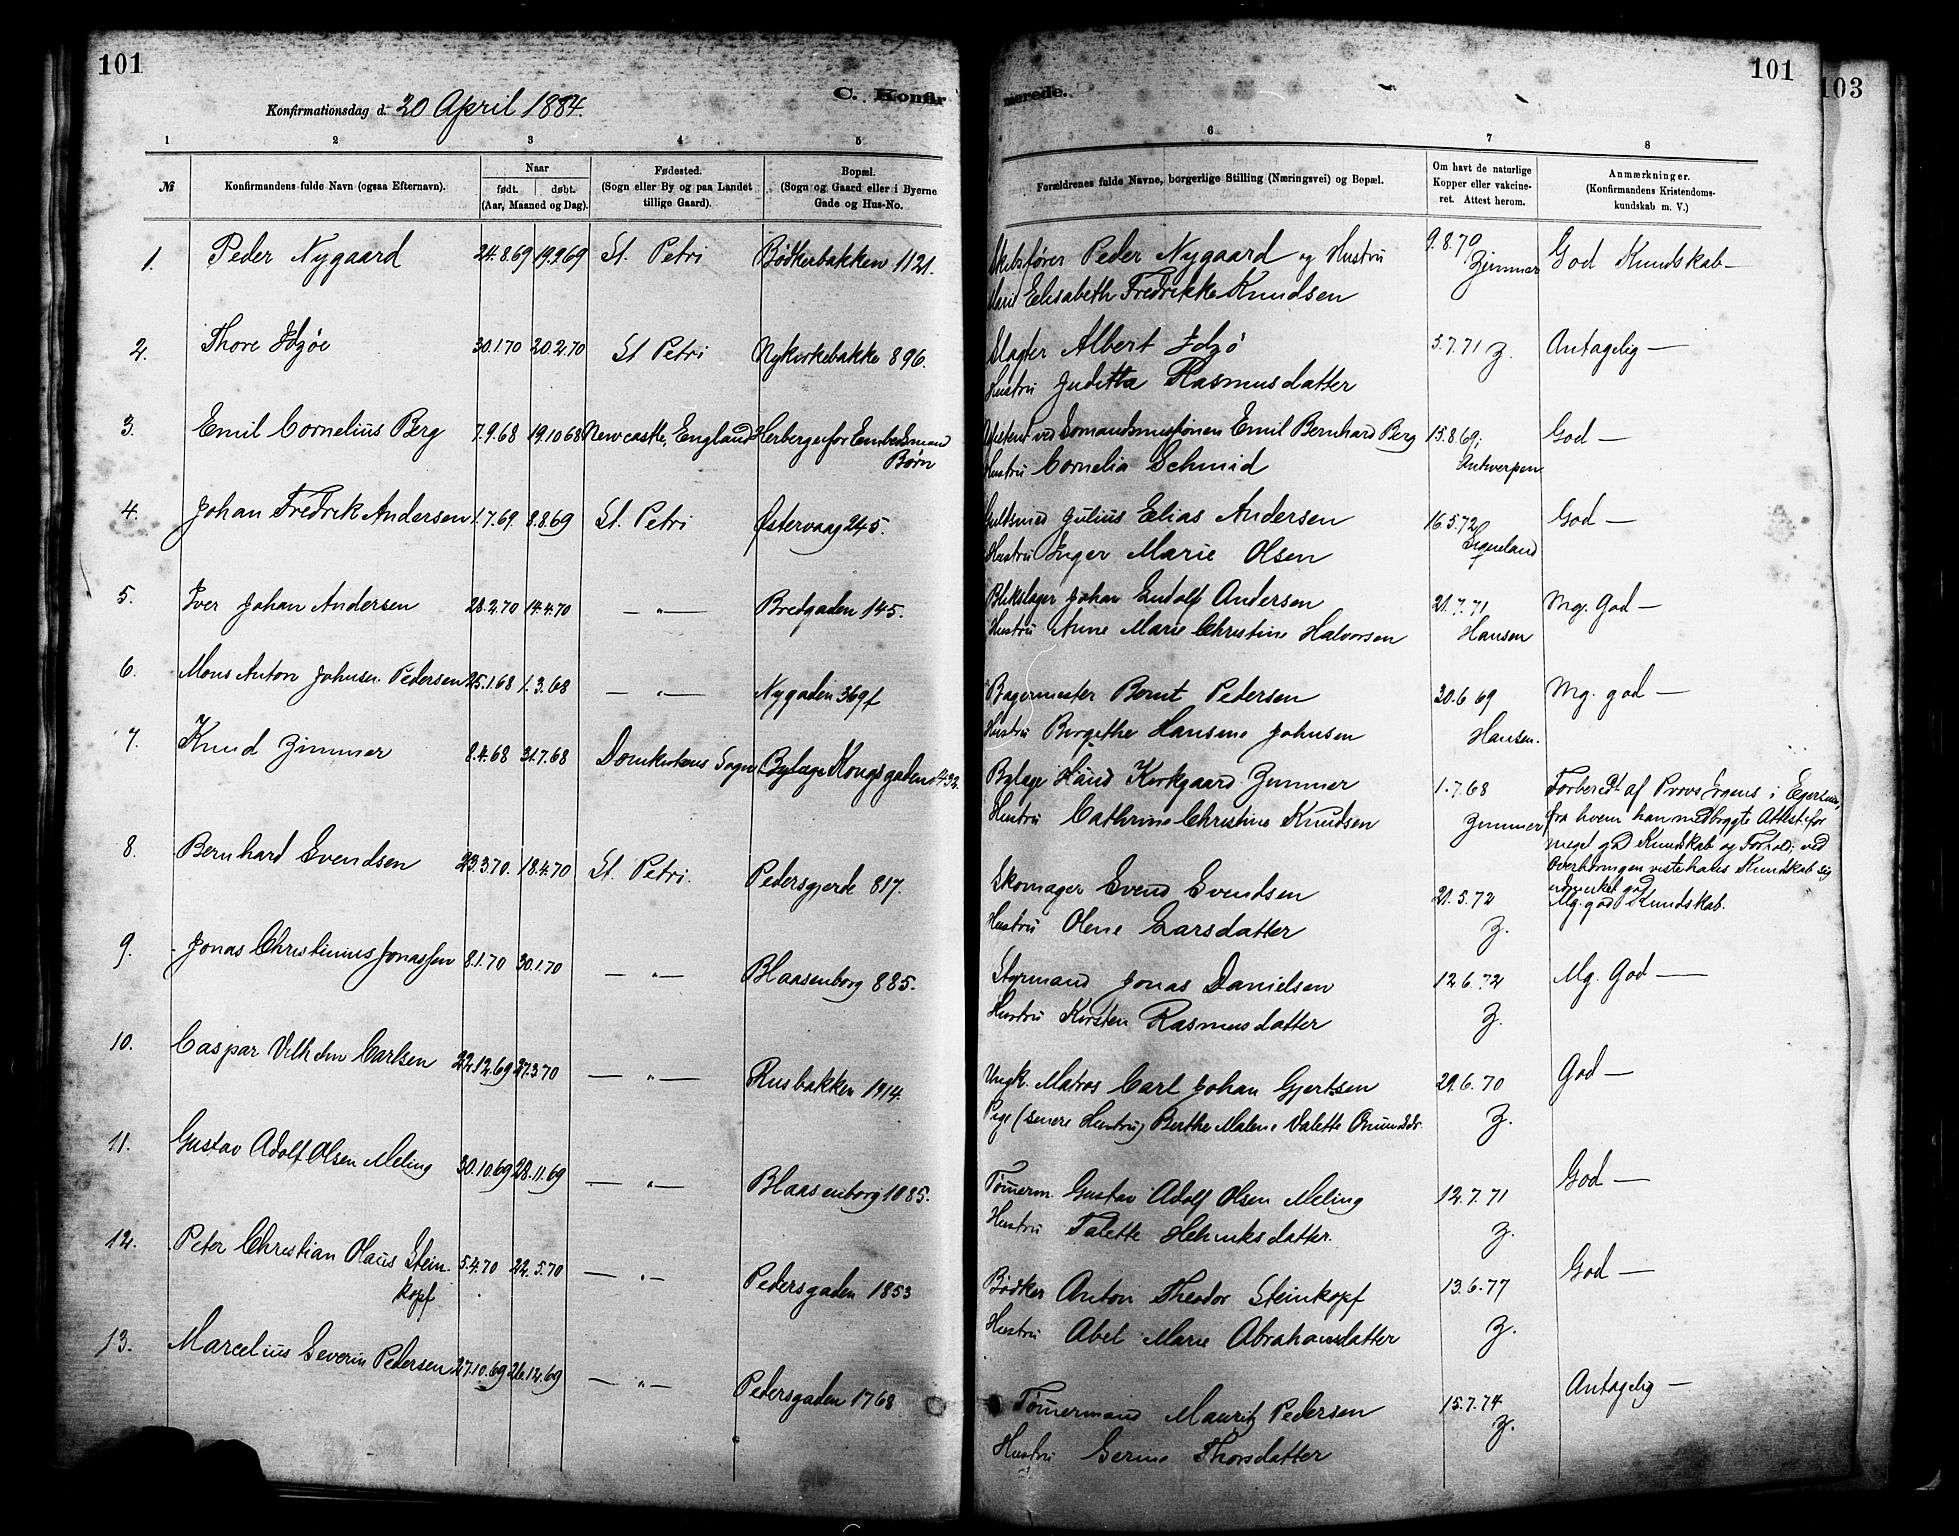 101
101
103
Konfirmationsdag d. 20 April 1884.
C. Konfir
merede.
1 2 3 4 5
6 7 8
№
Konfirmandens fulde Navn (ogsaa Efternavn).
Naar
født. døbt.
(Aar, Maaned og Dag).
Fødested.
(Sogn eller By og paa Landet
tillige Gaard).
Bopæl.
(Sogn og Gaard eller i Byerne
Gade og Hus-No.
Forældrenes fulde Navne, borgerlige Stilling (Næringsvei) og Bopæl.
Om havt de naturlige
Kopper eller vakcine-
ret. Attest herom.
Anmærkninger.
(Konfirmandens Kristendoms-
kundskab m. V.)
1. Peder Nygaard 24.8.69 19.9.69 St. Petri Bødkerbakken 1121.
Skibsfører Peder Nygaard og Hustru 9.8.70 Zimmer God Kundskab —
Marie Elisabeth Fredrikke Knudsen
2. Thore Idzøe 30.1.70 20.2.70 St Petri Nykirkebakke 896.
Slagter Albert Idzø 5.7.71 Z. Antagelig —
Hustru Juditta Rasmusdatter
3. Emil Cornelius Berg 7.9.68 19.10.68 Newcastle, England Herberge for
Børn
ved Sømandsmissionen Emil Bernhard Berg 15.8.69; God —
Hustru Cornelia Schmid Antwerpen
4. Johan Fredrik Andersen 1.7.69 8.8.69 St. Petri Østervaag 245.
Guldsmed Julius Elias Andersen 16.5.72 God —
Hustru Inger Marie Olsen
5. Iver Johan Andersen 28.2.70 14.4.70 — " — Bredgaden 145.
Blikslager Johan Ludolf Andersen 21.7.71 Mg. God —
Hustru Anne Marie Christine Halvorsen Hansen
6. Mons Anton Johnsen Pedersen 25.1.68 1.3.68 — " — Nygaden 369f
Bagermester Bernt Pedersen 20.6 69 Mg. god —
Hustru Bergethe Hansine Johnsen Hansen.
7. Knud Zimmer 8.4.68 31.7.68 Domkirkens Sogn Bylæge Kongsgaden 432.
Bylæge Kirkgaard Zimmer 1.7.68 Forberedt af Provs i
Hustru Cathrine Christine Knudsen Zimmer fra hvem han medbragte Attest for
meget god Kundskab og Forhold; ved
Overhøringen viste hans Kundskab sig
udmerket god
8. Bernhard Svendsen 23.3.70. 18.4.70 St. Petri. Pedersgjerde 817.
Skomager Svend Svendsen 21.5.72 Mg. god Kundskab.
Hustru Olene Larsdatter Z.
9. Jonas Christinius Jonassen 8.1.70 30.1.70 — " — Blaasenborg 885.
Styrmand Jonas Danielsen 12.6.72 Mg. God —
Hustru Kirsten Rasmusdatter Z.
10. Caspar Vilhelm Carlsen 22.12.69 27.3.70 — " — Rusbakken 1914.
Ungk. Matros Carl Johan Gjertsen 29.6.70 God —
Pige (senere Hustru) Berthe Malene Valette Z.
11. Gustav Adolf Olsen Meling 30.10.69 28.11.69 — " — Blaasenborg 1085.
Tømmerm. Gustav Adolf Olsen Meling 12.7.71 God —
Hustru Talette Henriksdatter. Z.
12. Peter Christian Olaus Stein- 5.4.70 22.5.70 — " — Pedersgaden 1853
kopf
Bødker Anton Theodor Steinkopf 13.6.77 God —
Hustru Abel Marie Abrahamsdatter Z.
13. Marcelius Severin Pedersen 27.10.69 26.12.69 — " — Pedersgaden 1768
Tømmermand Mauritz Pedersen 15.7.74 Antagelig —
Hustru Serine Thorsdatter Z.